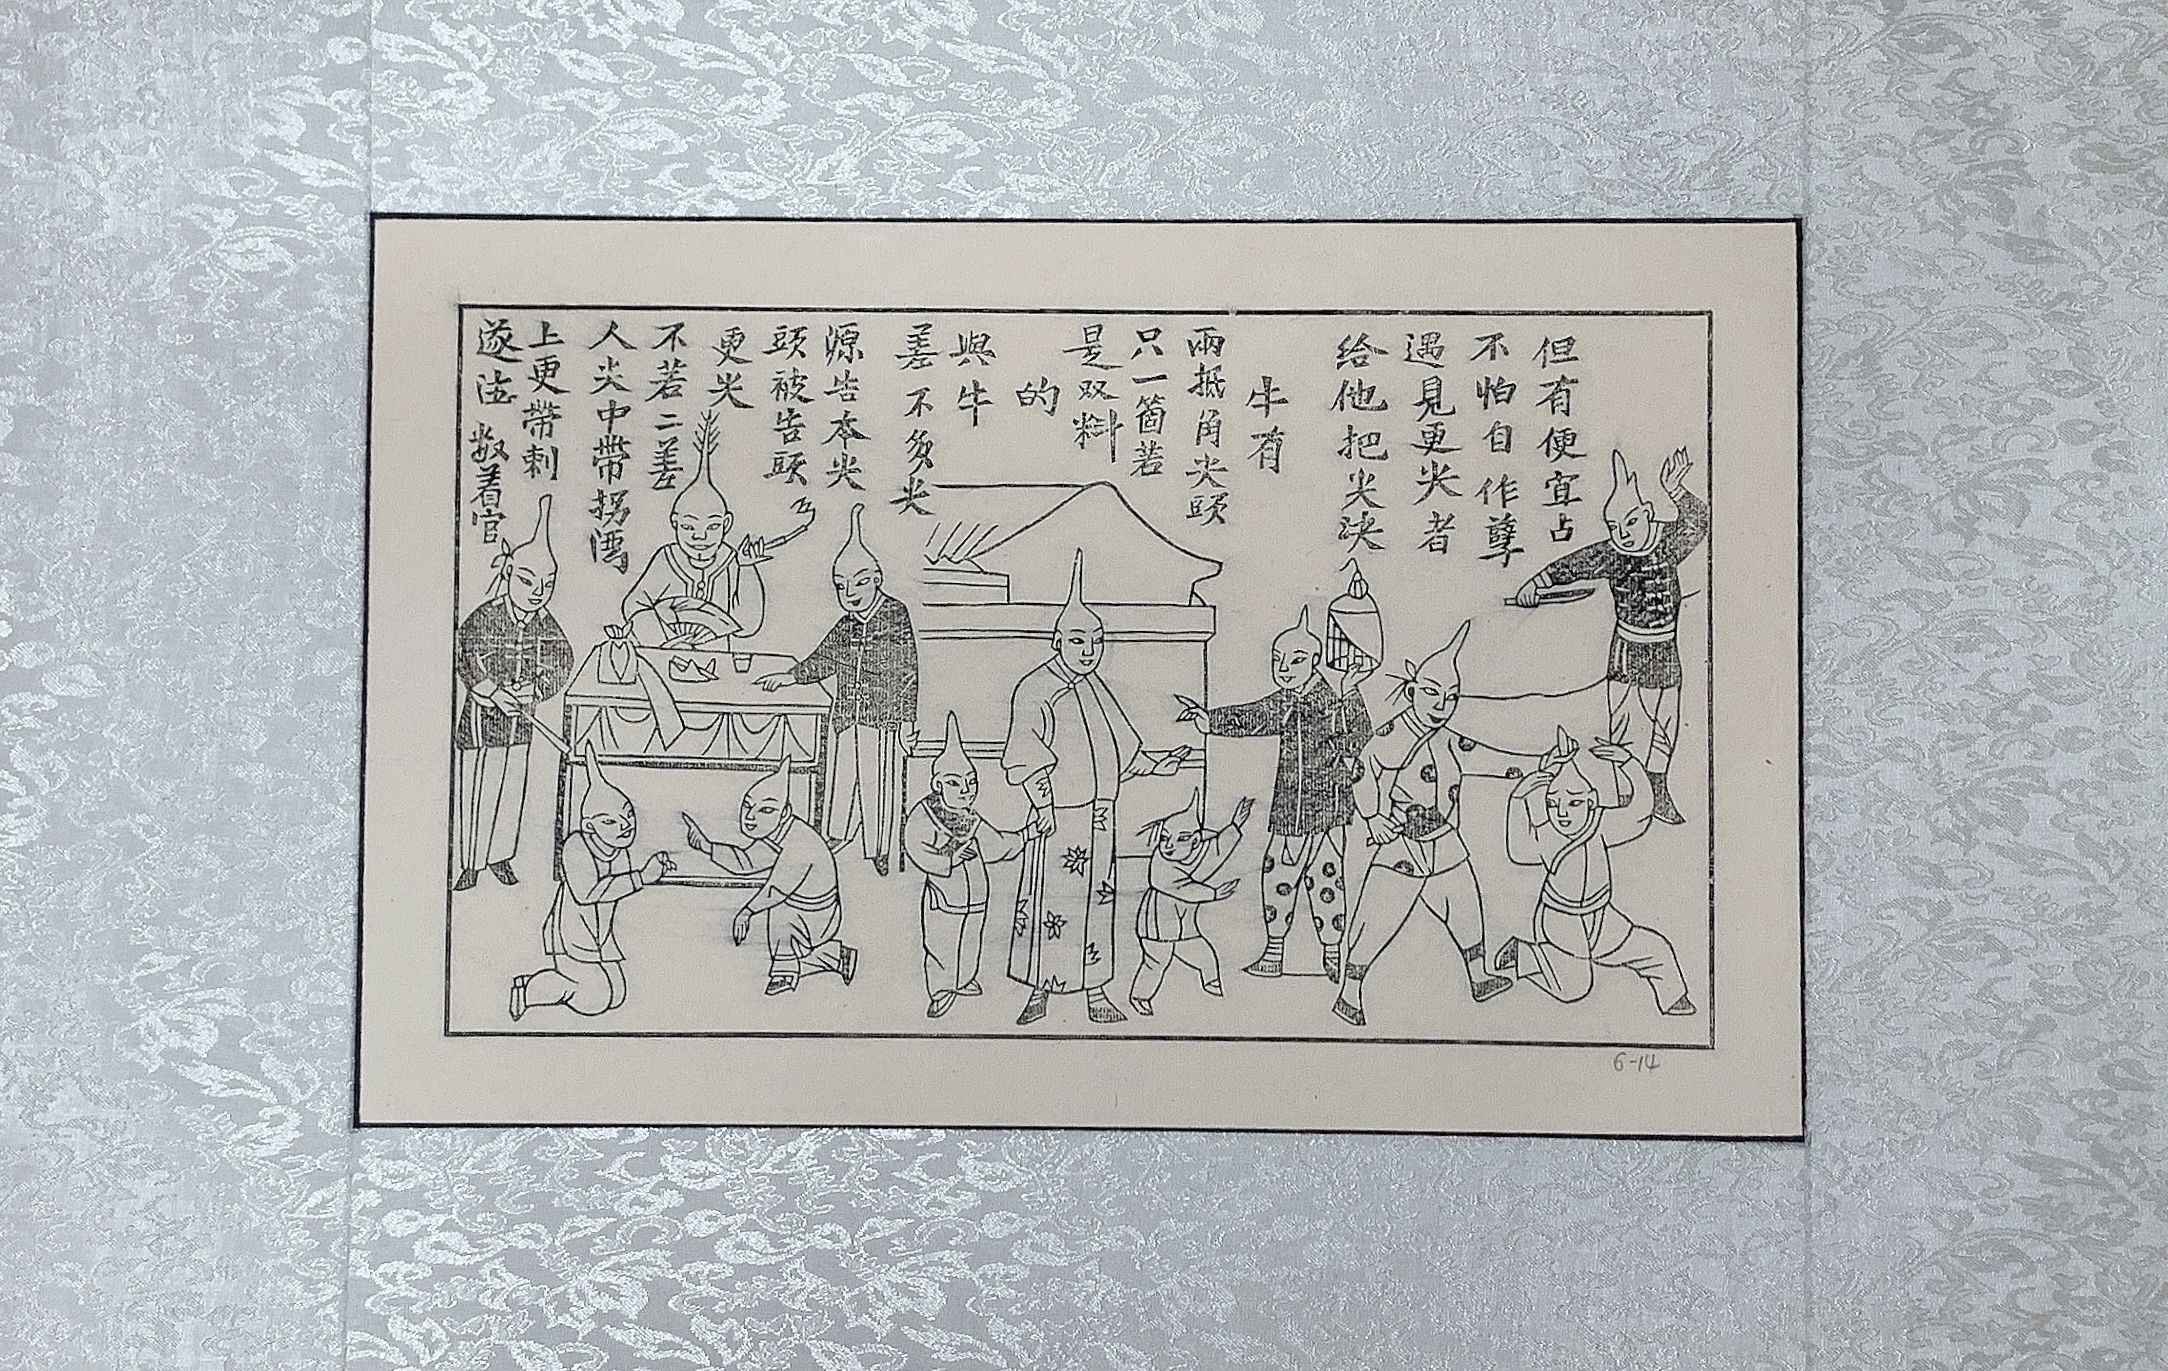 但有便宜占
不怕自作孽
遇見更尖者
给他把尖决
牛有
兩抵角尖頭
只一箇若
是双料
的
與牛
差不多尖
源告本尖
頭被告頭
更尖
不若二差
人尖中帶拐湾
上更帶刺
遂法敢着官
6-14